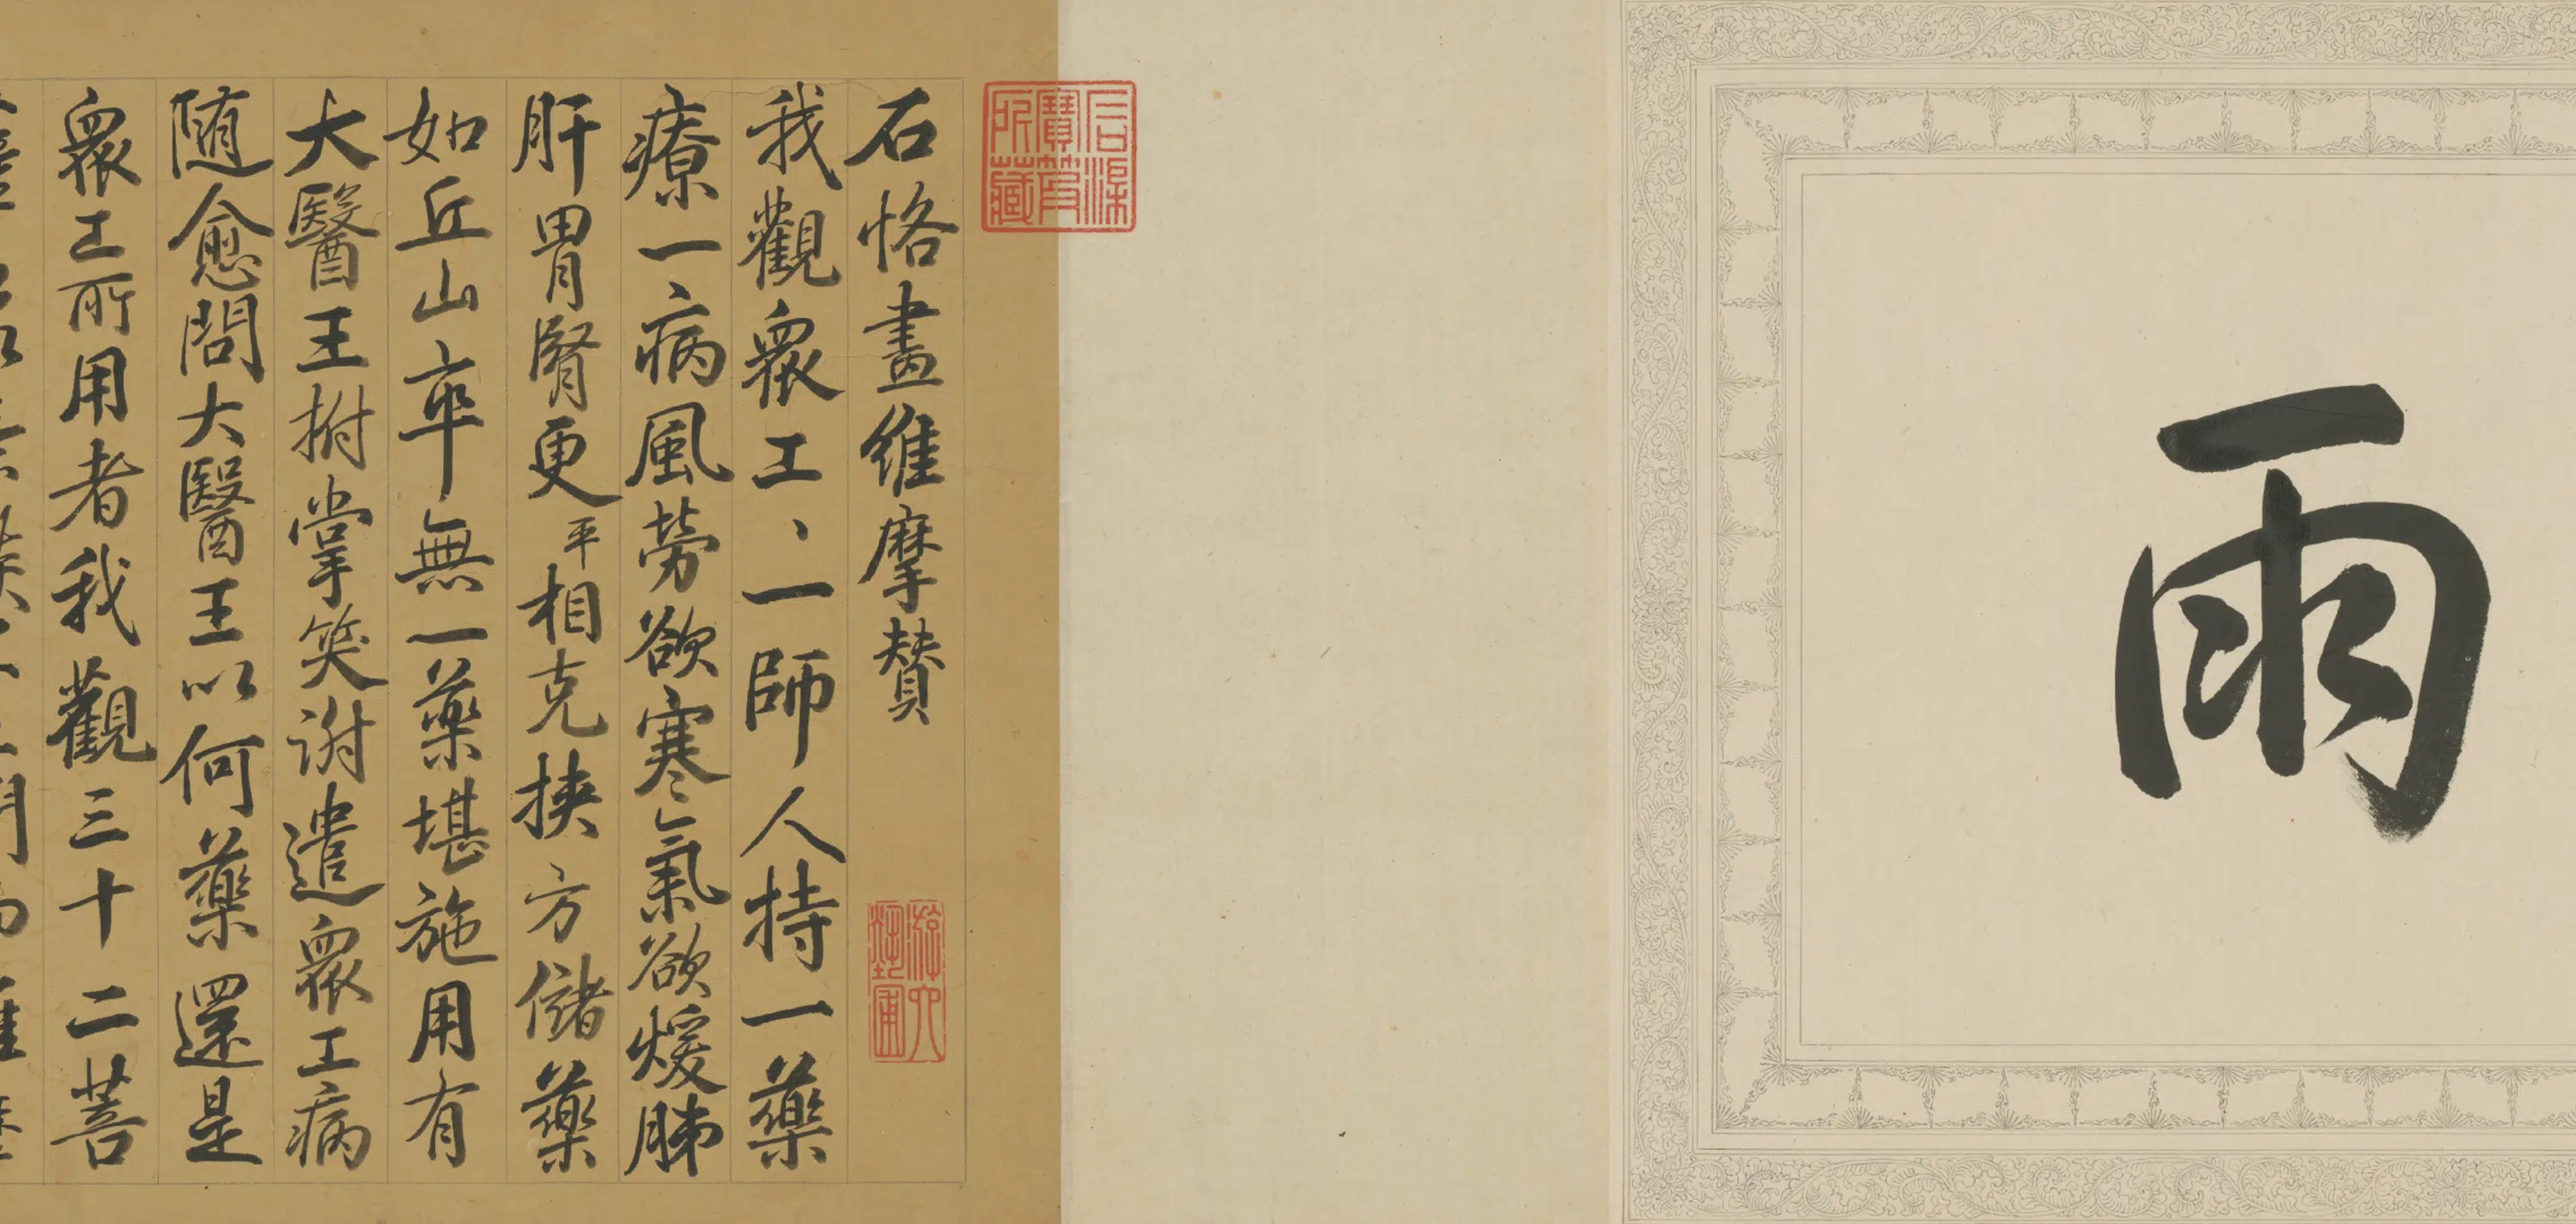 雨
石渠
寶笈
所藏
石恪畫維摩賛
游六
藝圃
我觀衆工、一師人持一藥
療一病風勞欲寒氣欲煖肺
肝胃腎更平相克挾方儲藥
如丘山卒無一藥堪施用有
大醫王拊掌笑謝遣衆工病
随愈問大醫王以何藥還是
衆工所用者我觀三十二菩